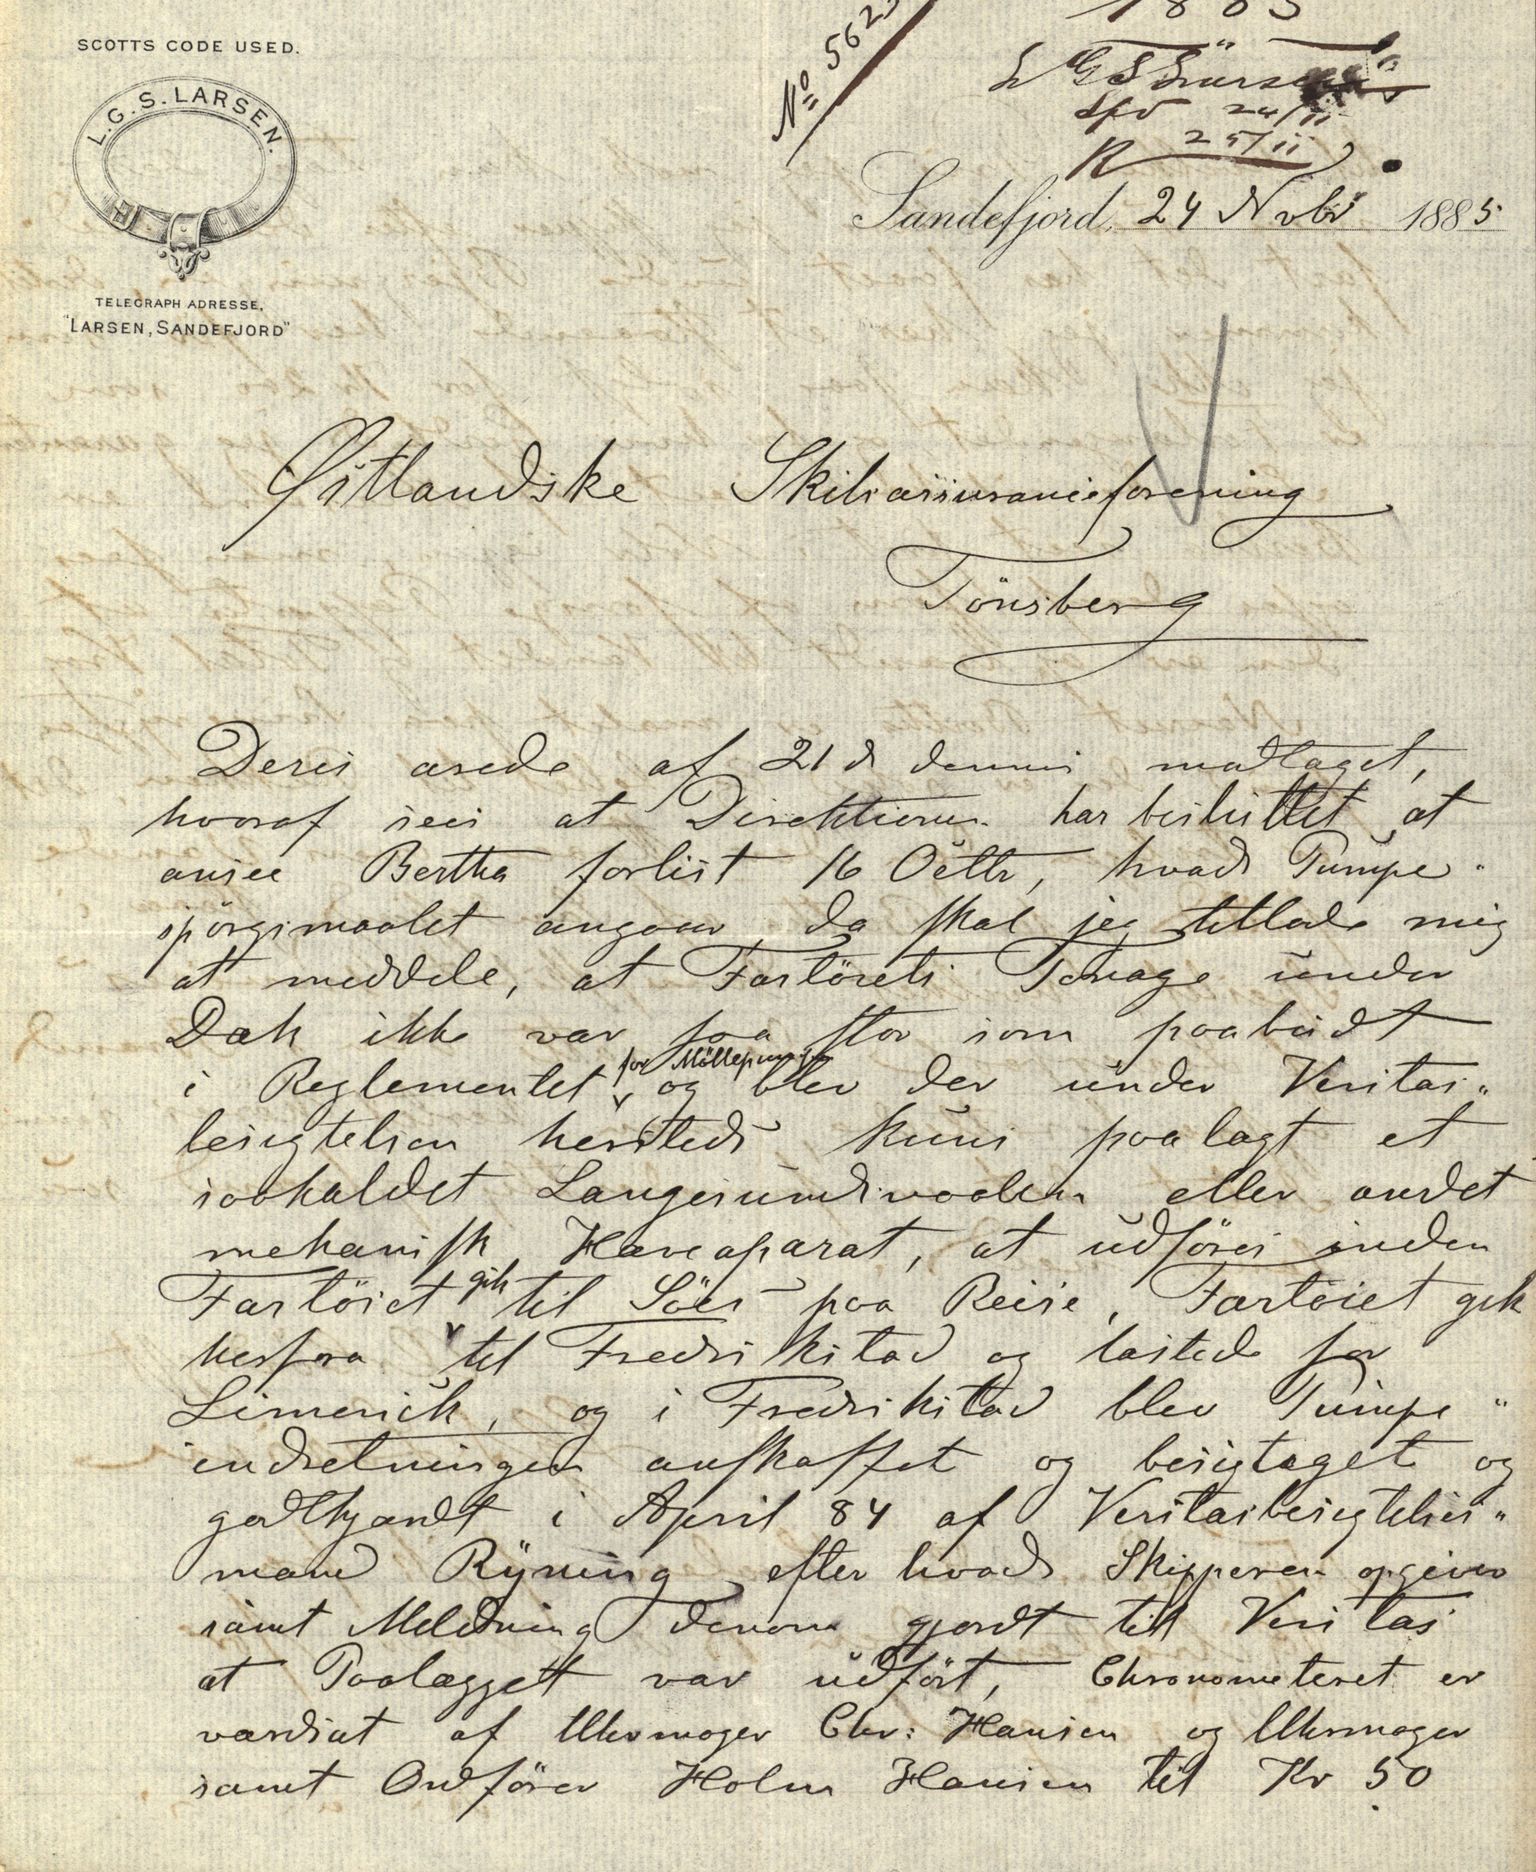 SCOTTS CODE USED.
L.G.S. LARSEN.
TELEGRAPH ADRESSE,
"LARSEN, SANDEFJORD"
No 5623
1885
L G S Larsen
24/11
R 25/11
Sandefjord, 24 Novbr 1885
Østlandske Skibsassuranceforening
Tönsberg
Deres ærede af 21 ds dennes modtaget,
hvoraf sees at Direktionen har besluttet at
ansee Bertha forlist 16 Octbr, hvad Pumpe-
spörgsmaalet angaar, da skal jeg tillade mig
at meddele, at Fartöiets Tonage under
Dæk ikke var saa stor som paabudt
i Reglementet for Möllepumpe og blev der under Veritas-
besigtelsen hersteds kuns paalagt et
saakaldet Langesundsvaaler eller andet
mekanisk Hæveaparat, at udföres inden
Fartöiet gik til Söes paa Reise, Fartöiet gik
herfra til Fredrikstad og lastede for
Limerick, og i Fredrikstad blev Pumpe-
indretningen anskaffet og besigtaget og
godkjendt i April 84 af Veritasbesigtelses-
mand Ryning, efter hvad Skipperen opgiver
samt Meldning derom gjordt til Veritas
at Paalægget var udfört, Chronometeret er
værdsat af Uhrmager Chr: Hansen og Uhrmager
samt Ordförer Holm Hansen til Kr 50